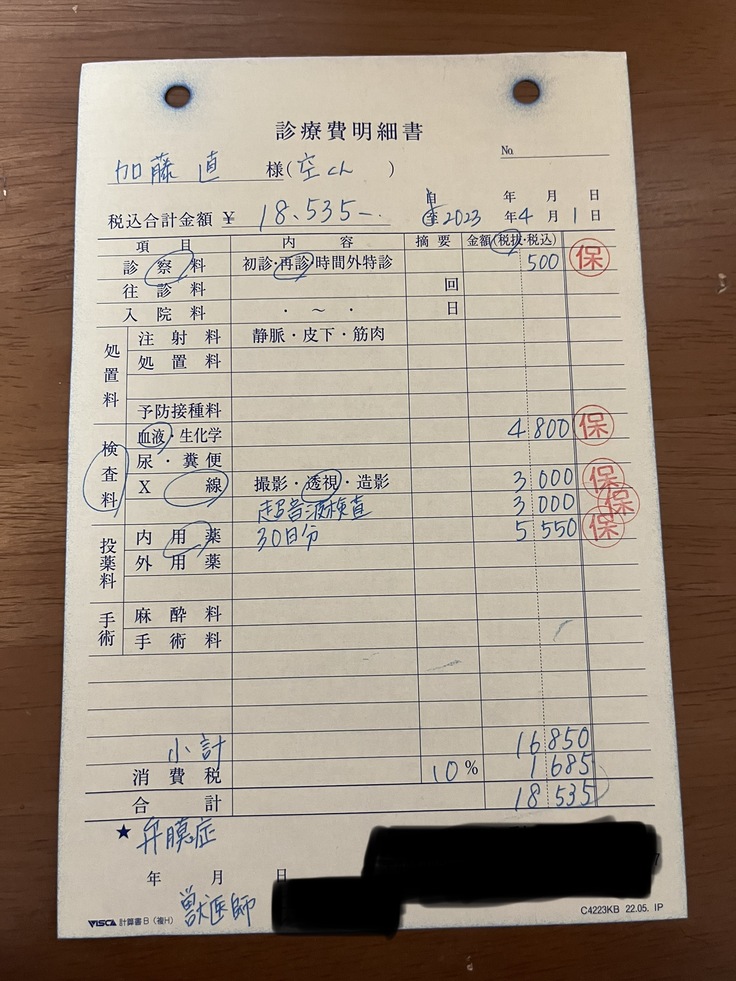 診療費明細書
No.
加藤 直 様(空ch )
自 年 月 日
税込合計金額 ¥ 18.535-. 至2023年4月1日
項目 内容 摘要 金額(税抜・税込)
診察料 初診・再診・時間外特診 500 保
往診料 回
入院料 ・ ~ ・ 日
処置料
注射料 静脈・皮下・筋肉
処置料
予防接種料
検査料
血液・生化学 4 800 保
尿・糞便
X線 撮影・透視・造影 3 000 保
超音波検査 3 000 保
投薬料
内用薬 30日分 5 550 保
外用薬
手術
麻酔料
手術料
小計 16 850
消費税 10% 1 685
合計 18 535
★ 弁膜症
年 月 日
獣医師
VISCA 計算書B(複H) C4223KB 22.05. IP